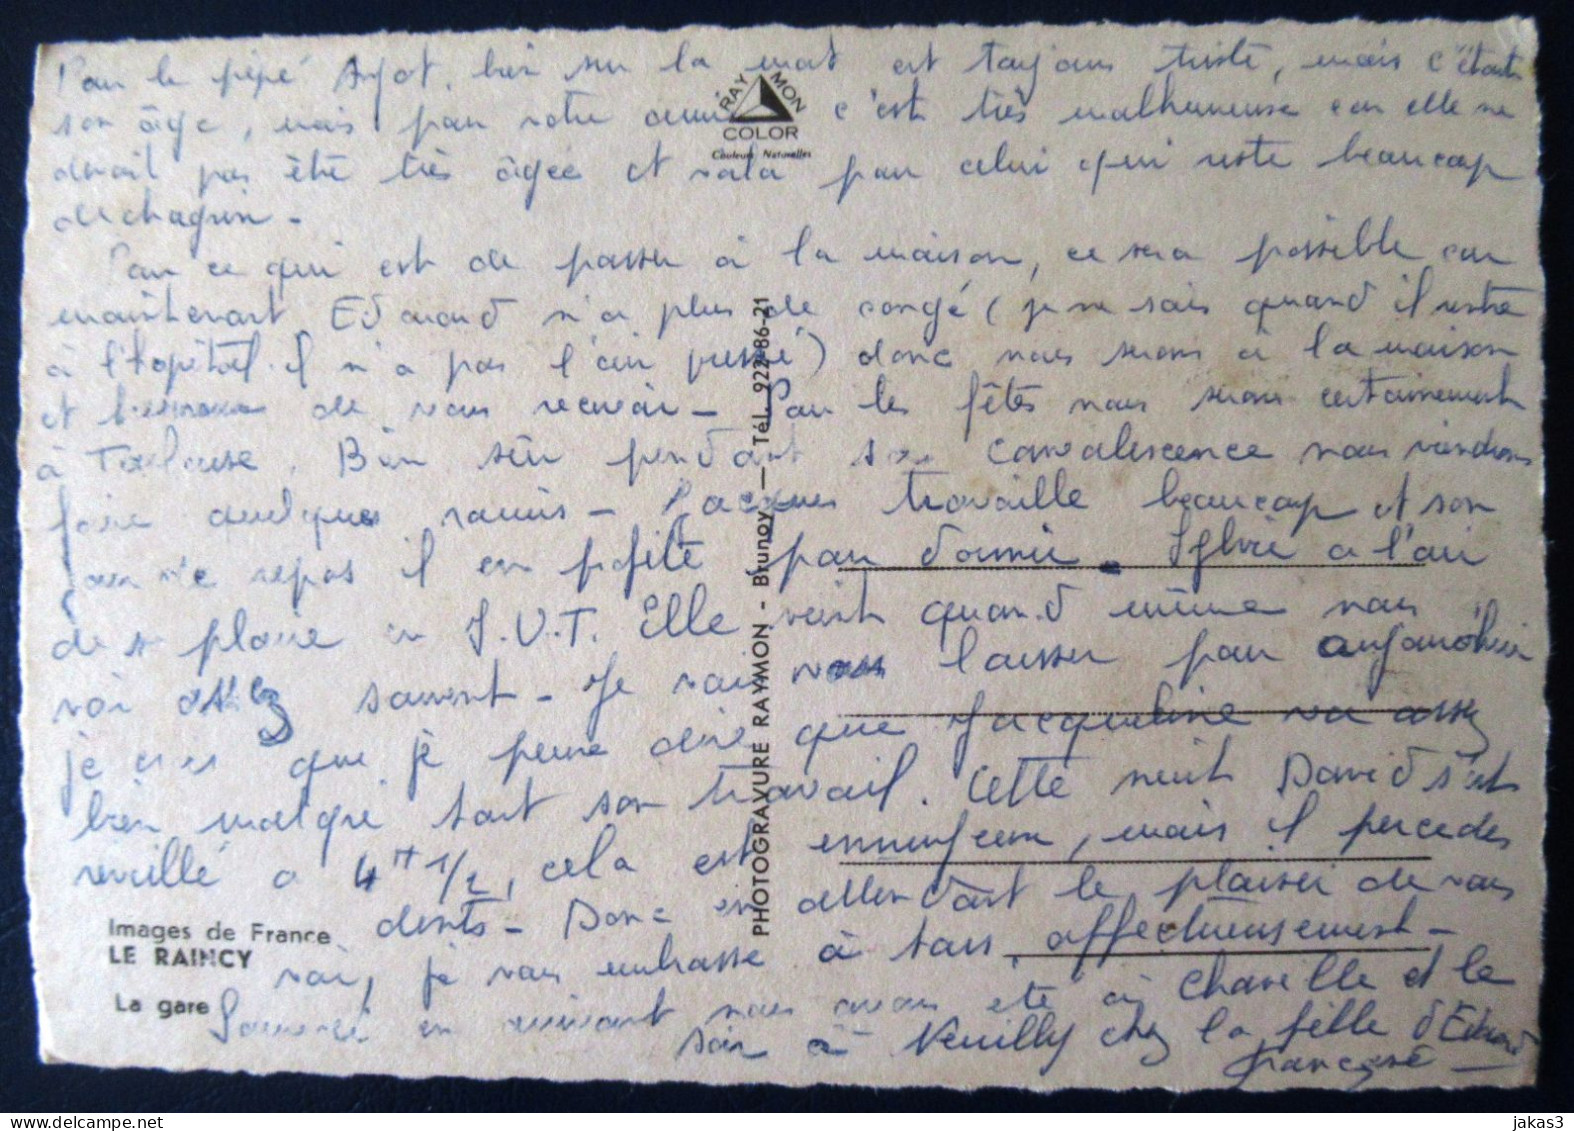 Pour le pépé Ayot, bien sur la mort est toujours triste, mais c'était
son âge, mais pour votre amie c'est très malheureuse car elle ne
devait pas être très âgée et voila pour celui qui reste beaucoup
de chagrin -
Pour ce qui est de passer à la maison, ce sera possible car
maintenant Edouard n'a plus de congé (je ne sais quand il rentre
à l'hopital. il n'a pas l'air pressé) donc nous serons à la maison
et heureux de vous recevoir - Pour les fêtes nous serons certainement
à Toulouse. Bien sûr pendant sa convalescence nous viendrons
faire quelques soucis - Jacques travaille beaucoup et son
jour de repos il en profite pour dormir. Sylvie a l'air
de se plaire en I.U.T. Elle vient quand même nous
voir assez souvent - Je vais vous laisser pour aujourd'hui
je crois que je peux dire que Jacqueline va assez
bien malgré tout son travail. Cette nuit David s'est
réveillé a 4H 1/2, cela est ennuyeux, mais il perce des
dents - Donc en attendant le plaisir de vous
voir, je vous embrasse à tous affectueusement -
Samedi en revenant nous avons été à Chaville et le
soir à Neuilly chez la fille d'Edouard
Françoise
RAYMON
COLOR
Couleurs Naturelles
PHOTOGRAVURE RAYMON - Brunoy - Tél. 922-86-21
Images de France
LE RAINCY
La gare
jakas3